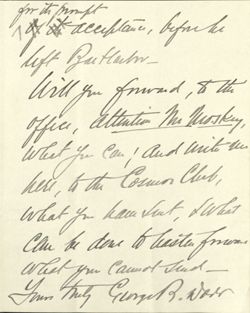 for its prompt
acceptance, before he
left Bar Harbor —
Will you forward, to the
office, attention Mr Moskey,
what you can; and write me
here, to the Cosmos Club,
what you have sent, & what
can be done to hasten forward
what you cannot send —
Yours truly George B. Dorr